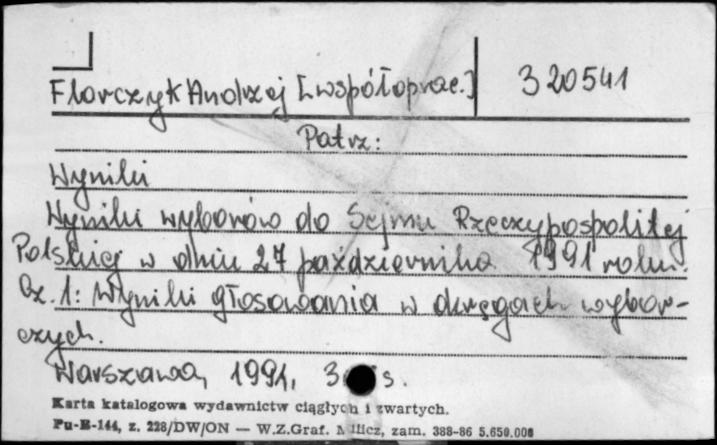 Florczyk Andrzej [współoprac.] 320541
Patrz:
Wyniki
Wyniki wyborów do Sejmu Rzeczypospolitej
Polskiej w dniu 27 października 1991 roku.
Cz. 1: Wyniki głosowania w okręgach wybor-
czych.
Warszawa, 1991, 3 s.
Karta katalogowa wydawnictw ciągłych i zwartych.
Pu-K-144, z. 228/DW/ON — W.Z.Graf. Milicz, zam. 388-86 5.650.000